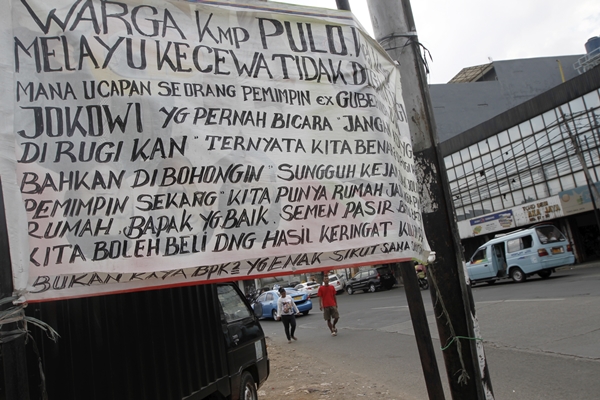 WARGA KMP PULO
MELAYU KECEWA TIDAK
MANA UCAPAN SEORANG PEMIMPIN EX
JOKOWI YG PERNAH BICARA "JANGAN
DI RUGI KAN" TERNYATA KITA
BAHKAN DI BOHONGIN" SUNGGUH
PEMIMPIN SEKANG "KITA PUNYA RUMAH
RUMAH. BAPAK YG BAIK. SEMEN PASIR
KITA BOLEH BELI DNG HASIL KERINGAT
BUKAN KAYA BPK2 YG ENAK SIKUT SANA